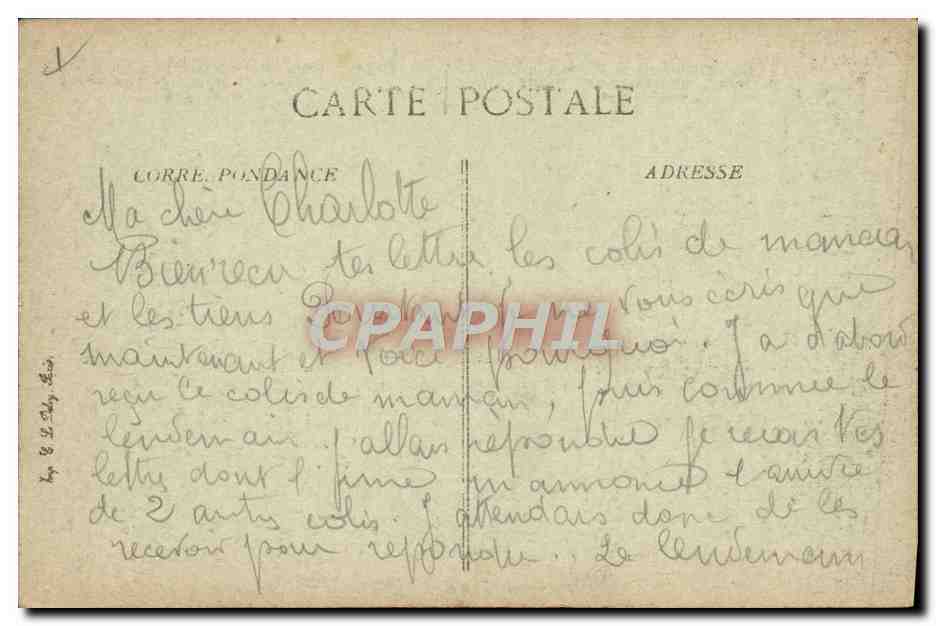 CARTE POSTALE
CORRE PONDANCE
ADRESSE
Ma chère Charlotte
Bien reçu tes lettre les colis de maman
et les tiens Pourtant je ne vous écris que
maintenant et voici pourquoi. J'ai d'abord
reçu le colis de maman, puis comme le
lendemain j'allais répondre je recois
lettre dont m'annonce l'arrivée
de 2 autres colis. J'attendais donc de les
recevoir pour répondre.. Le lendemain
CPAPHIL
Imp. E. Le Deley, Paris.